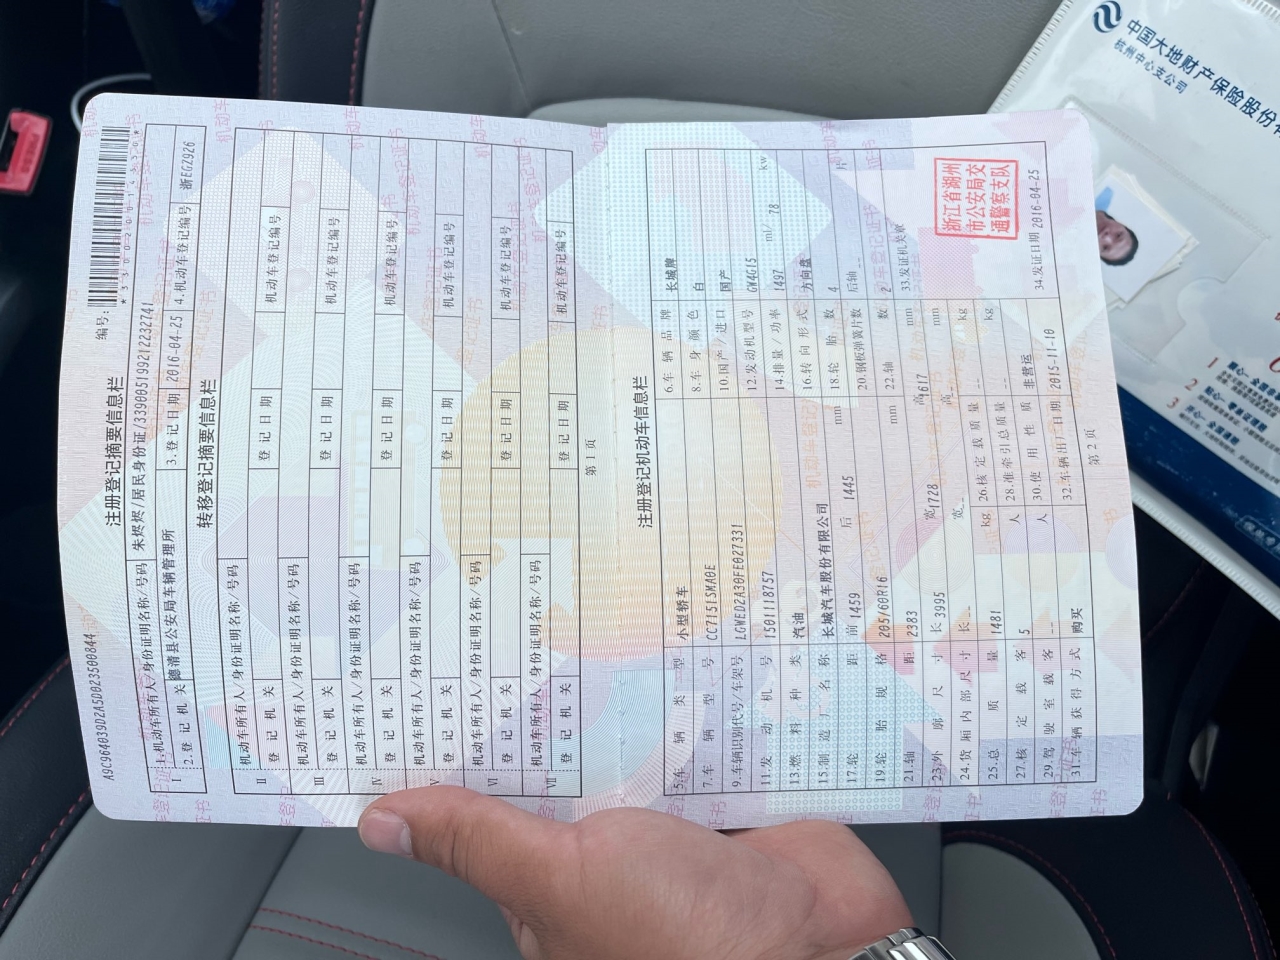 A9C964039D2A5D023500844
编号:
注册登记摘要信息栏
I 1.机动车所有人/身份证明名称/号码 朱烬烬/居民身份证/339005199212232741
2.登记机关 德清县公安局车辆管理所 3.登记日期 2016-04-25 4.机动车登记编号 浙EGZ926
转移登记摘要信息栏
II 机动车所有人/身份证明名称/号码
登记机关 登记日期 机动车登记编号
III 机动车所有人/身份证明名称/号码
登记机关 登记日期 机动车登记编号
IV 机动车所有人/身份证明名称/号码
登记机关 登记日期 机动车登记编号
V 机动车所有人/身份证明名称/号码
登记机关 登记日期 机动车登记编号
VI 机动车所有人/身份证明名称/号码
登记机关 登记日期 机动车登记编号
VII 机动车所有人/身份证明名称/号码
登记机关 登记日期 机动车登记编号
第1页
注册登记机动车信息栏
5.车辆类型 小型轿车 6.车辆品牌 长城牌
7.车辆型号 CC7151SMA0E 8.车身颜色 白
9.车辆识别代号/车架号 LGWED2A30FE027331 10.国产/进口 国产
11.发动机号 1501118757 12.发动机型号 GW4G15
13.燃料种类 汽油 14.排量/功率 1497 ml/ 78 kw
15.制造厂名称 长城汽车股份有限公司 16.转向形式 方向盘
17.轮距 前 1459 后 1445 mm 18.轮胎数 4
19.轮胎规格 205/60R16 20.钢板弹簧片数 后轴 -- 片
21.轴距 2383 mm 22.轴数 2
23.外廓尺寸 长 3995 宽 1728 高 1617 mm 33.发证机关章
24.货厢内部尺寸 长 -- 宽 -- 高 -- mm
25.总质量 1481 kg 26.核定载质量 -- kg
27.核定载客 5 人 28.准牵引总质量 -- kg
29.驾驶室载客 -- 人 30.使用性质 非营运
31.车辆获得方式 购买 32.车辆出厂日期 2015-11-10 34.发证日期 2016-04-25
浙江省湖州
市公安局交
通警察支队
第2页
中国大地财产保险股份有
杭州中心支公司
1
2
3